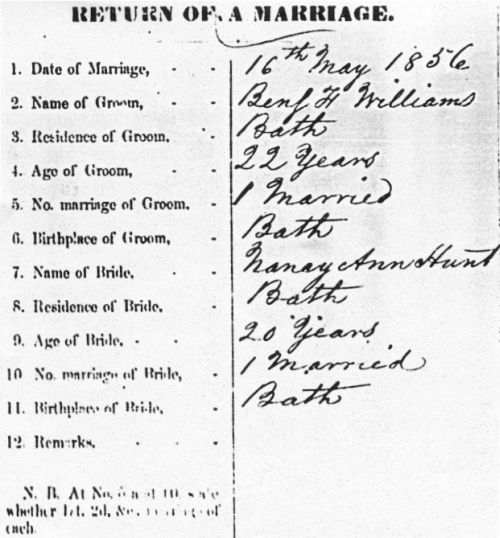 RETURN OF A MARRIAGE.
1. Date of Marriage, - - 16th May 1856
2. Name of Groom, - - Benj H Williams
3. Residence of Groom, - Bath
4. Age of Groom, - - 22 Years
5. No. marriage of Groom. - 1 Married
6. Birthplace of Groom, - Bath
7. Name of Bride, - - Nancy Ann Hunt
8. Residence of Bride. - Bath
9. Age of Bride. - - 20 Years
10 No. marriage of Bride, - 1 Married
11. Birthplace of Bride, - Bath
12. Remarks. - - -
N. B. At No. 5 and 10, state
whether 1st. 2d, &c. marriage of
each.